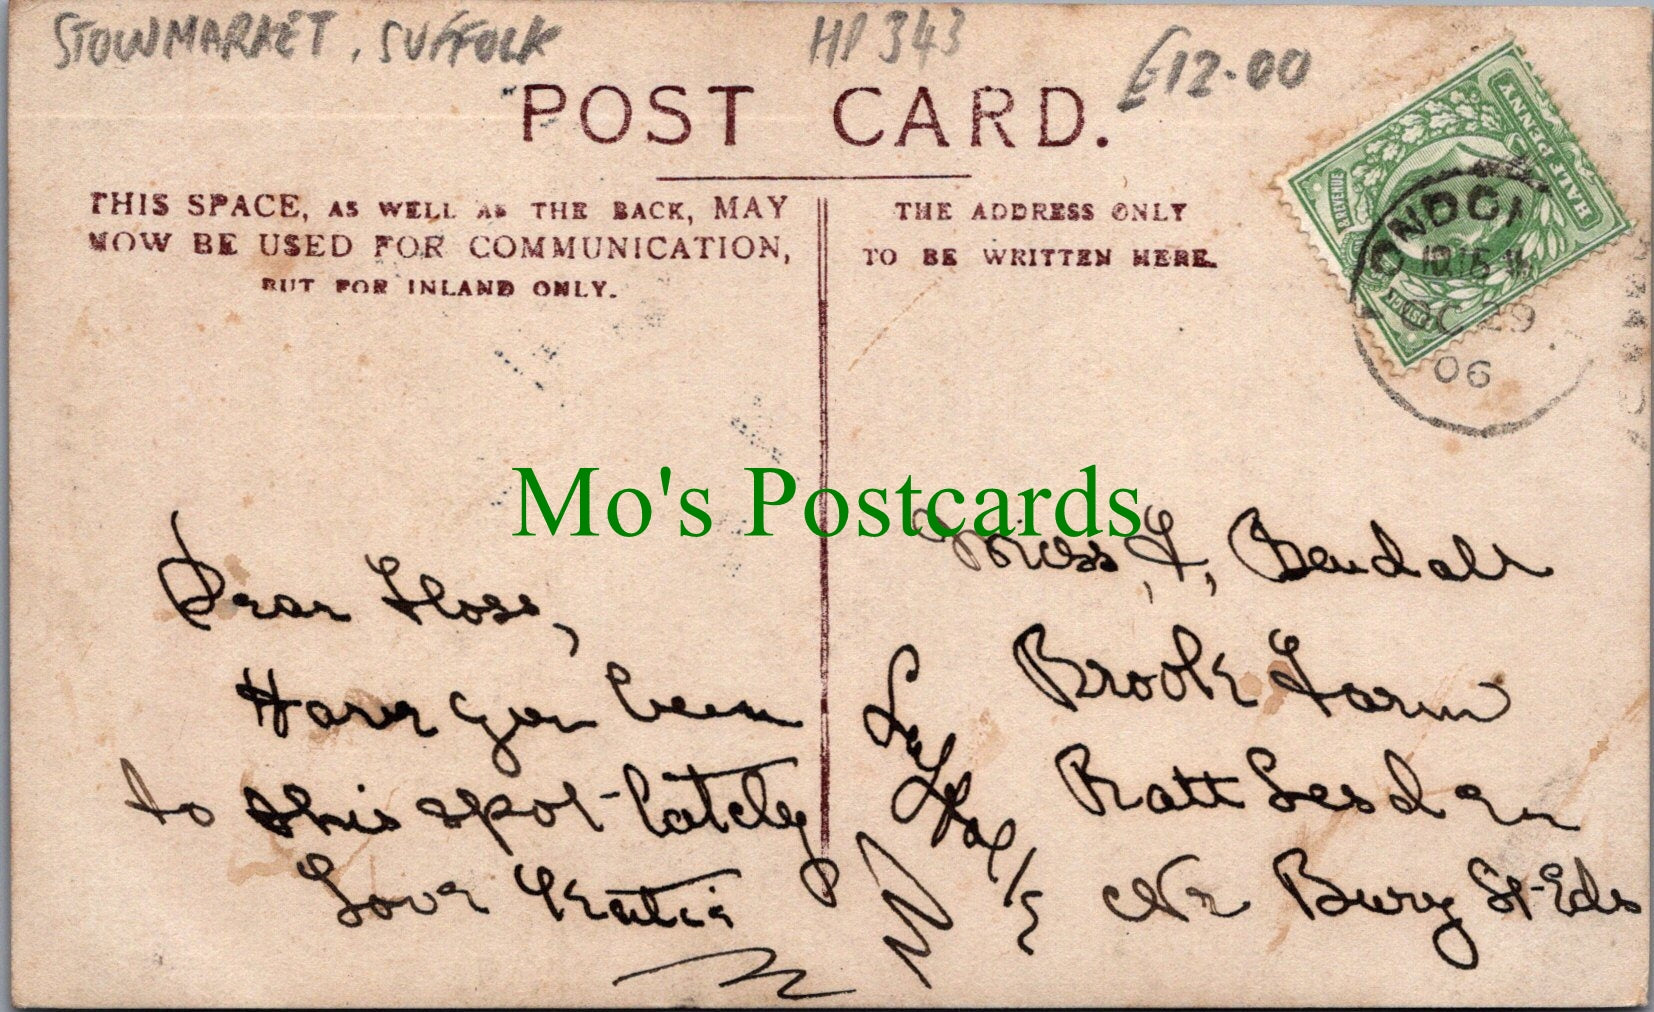 STOWMARKET, SUFFOLK
HP 343
£12.00
POST CARD.
THIS SPACE, AS WELL AS THE BACK, MAY
NOW BE USED FOR COMMUNICATION,
BUT FOR INLAND ONLY.
THE ADDRESS ONLY
TO BE WRITTEN HERE.
HALF PENNY
& REVENUE
LONDON
10.15
OC 29
06
Mo's Postcards
Dear Floss,
Have you been
to this spot lately
Love
Miss, F, Bendall
Brook Farm
Rattlesden
Nr Bury St-Eds
Suffolk